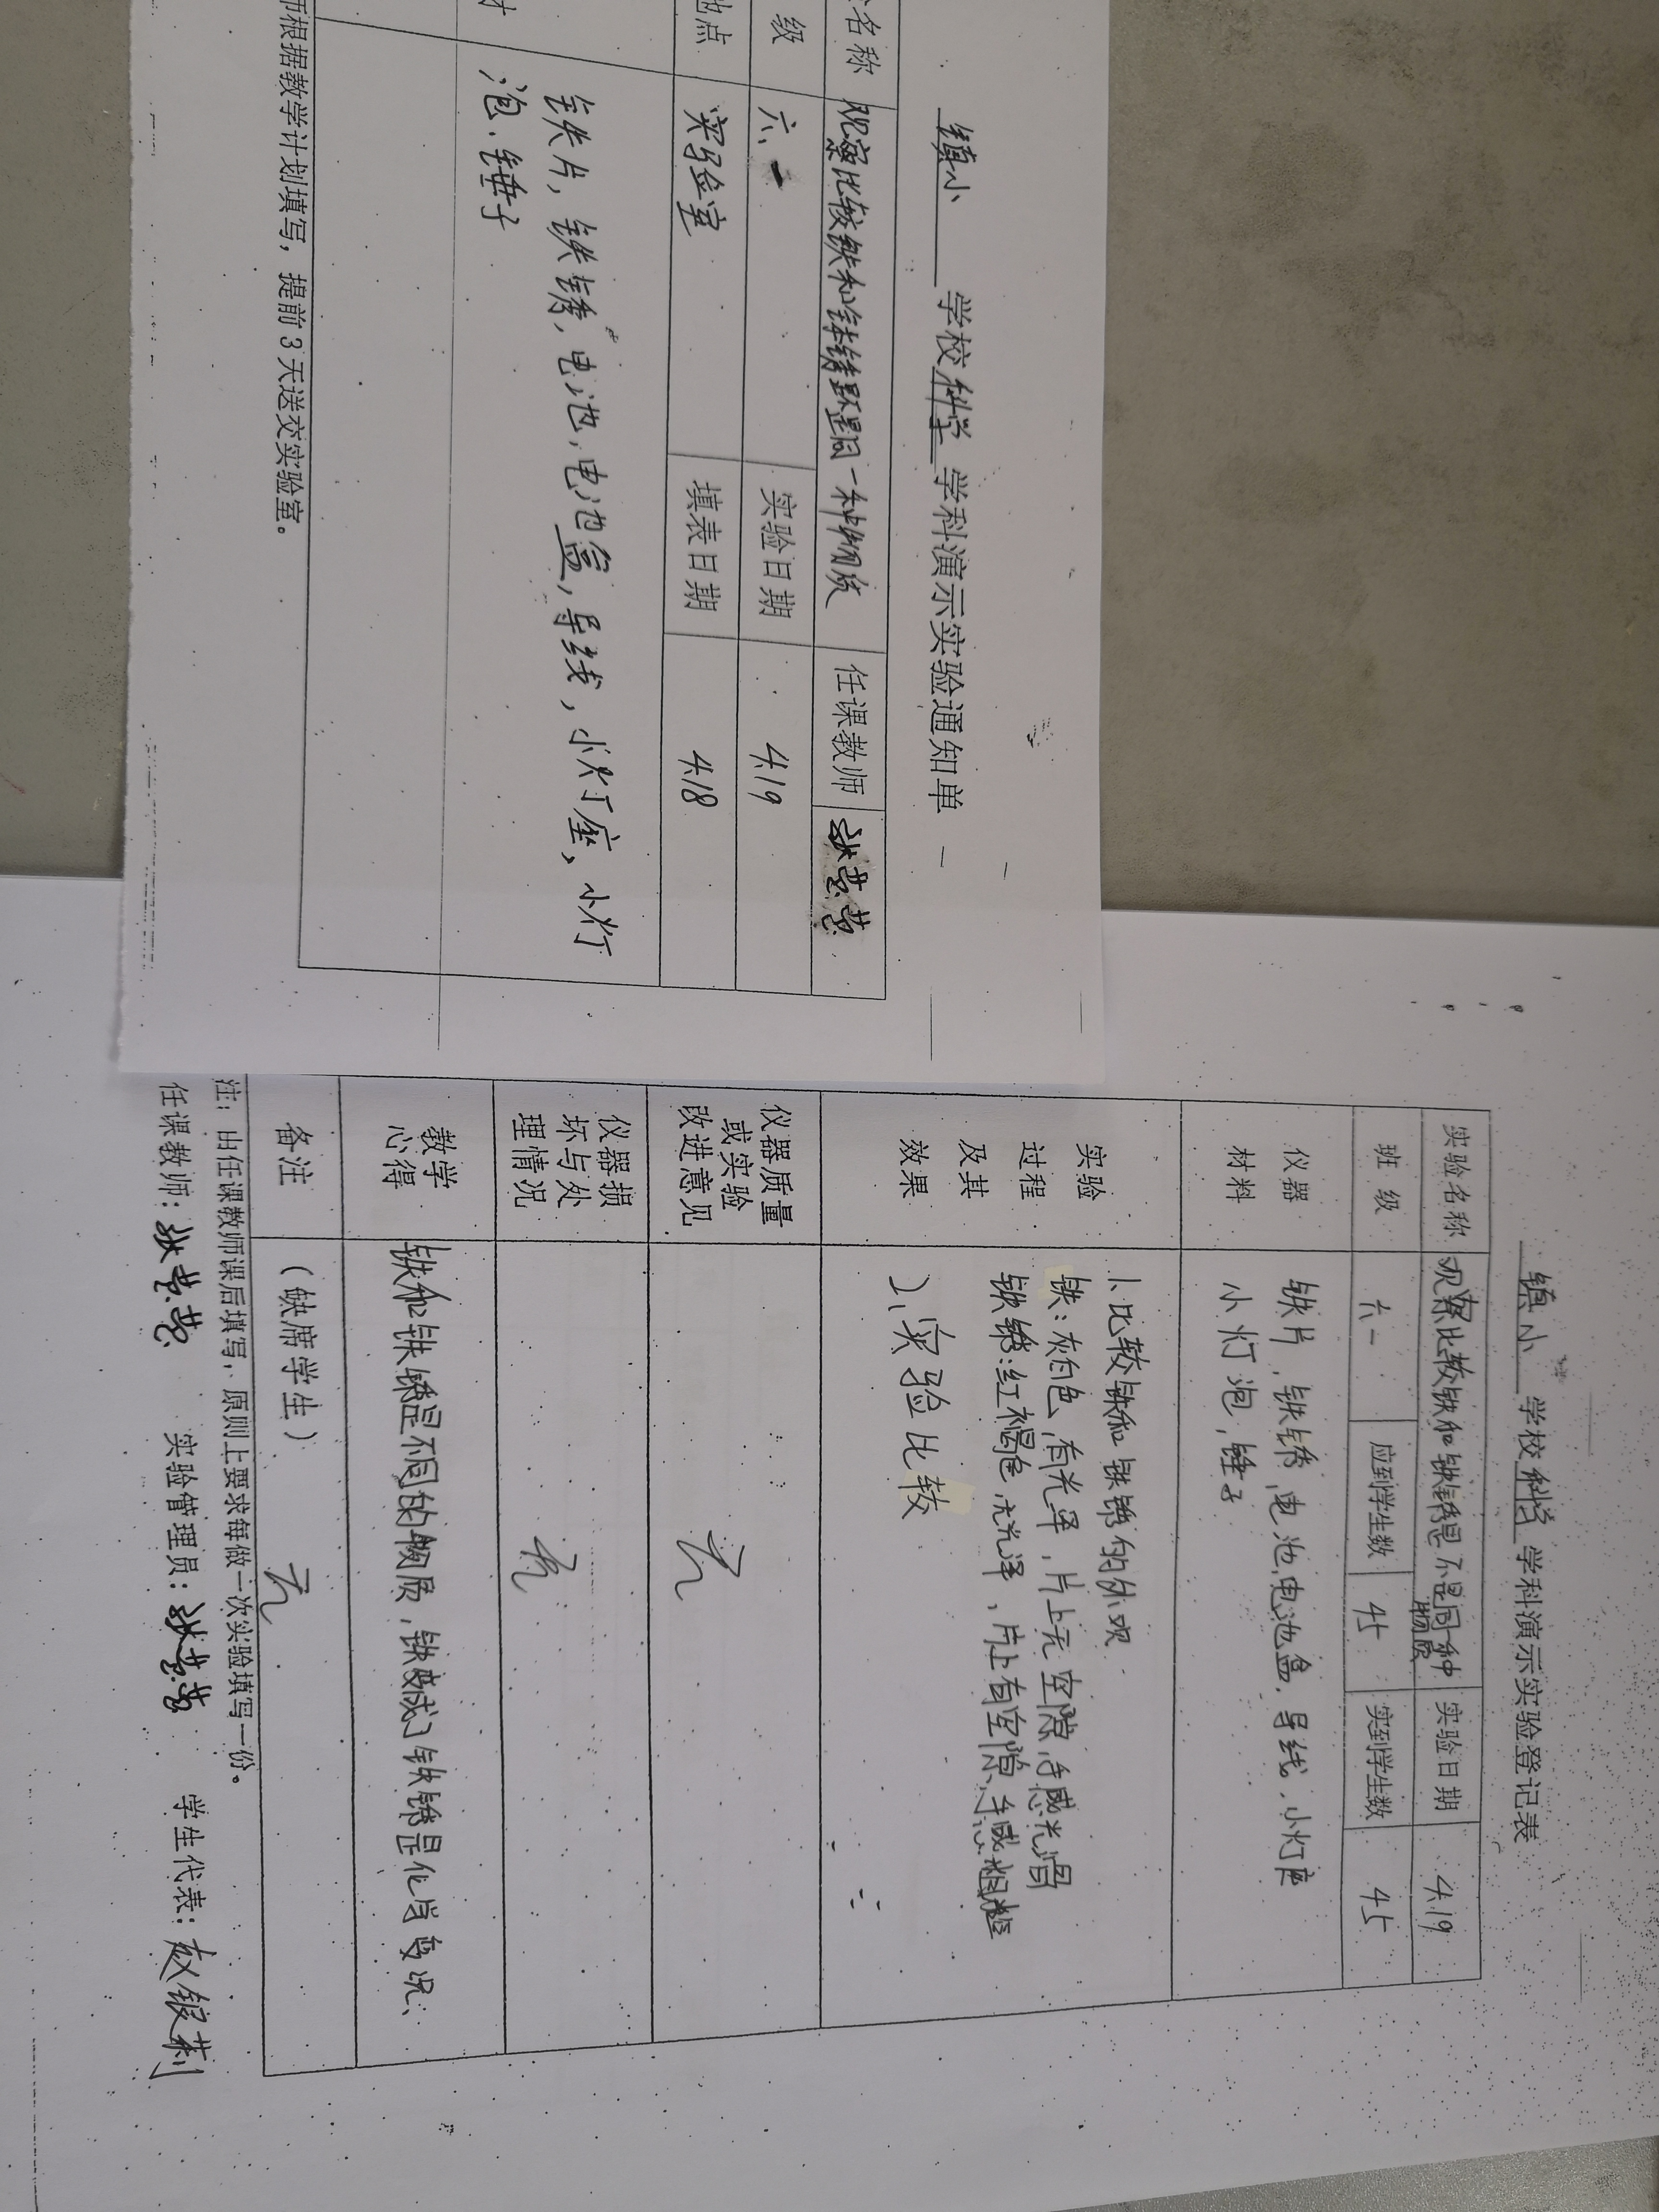 镇小 学校 科学 学科演示实验通知单
名称 观察比较铁和铁锈是不是同一种物质 任课教师 张芸芸
级 六、一 实验日期 4.19
地点 实验室 填表日期 4.18
铁片，铁锈，电池，电池盒，导线，小灯座、小灯
泡、锤子
师根据教学计划填写，提前3天送交实验室。
镇小 学校 科学 学科演示实验登记表
实验名称 观察比较铁和铁锈是不是同一种物质 实验日期 4.19
班 级 六一 应到学生数 45 实到学生数 45
仪器
材料
铁片，铁锈，电池，电池盒，导线，小灯座
小灯泡，锤子
实验
过程
及其
效果
1、比较铁和铁锈的外观
铁：灰白色，有光泽，片上无空隙，手感光滑
铁锈：红褐色，无光泽，片上有空隙，手感粗糙
2、实验比较
仪器质量
或实验
改进意见
无
仪器损
坏与处
理情况
无
教学
心得
铁和铁锈是不同的物质，铁变成了铁锈是化学变况、
备注 （缺席学生） 无
注：由任课教师课后填写，原则上要求每做一次实验填写一份。
任课教师：张芸芸 实验管理员：张芸芸 学生代表：赵银莉